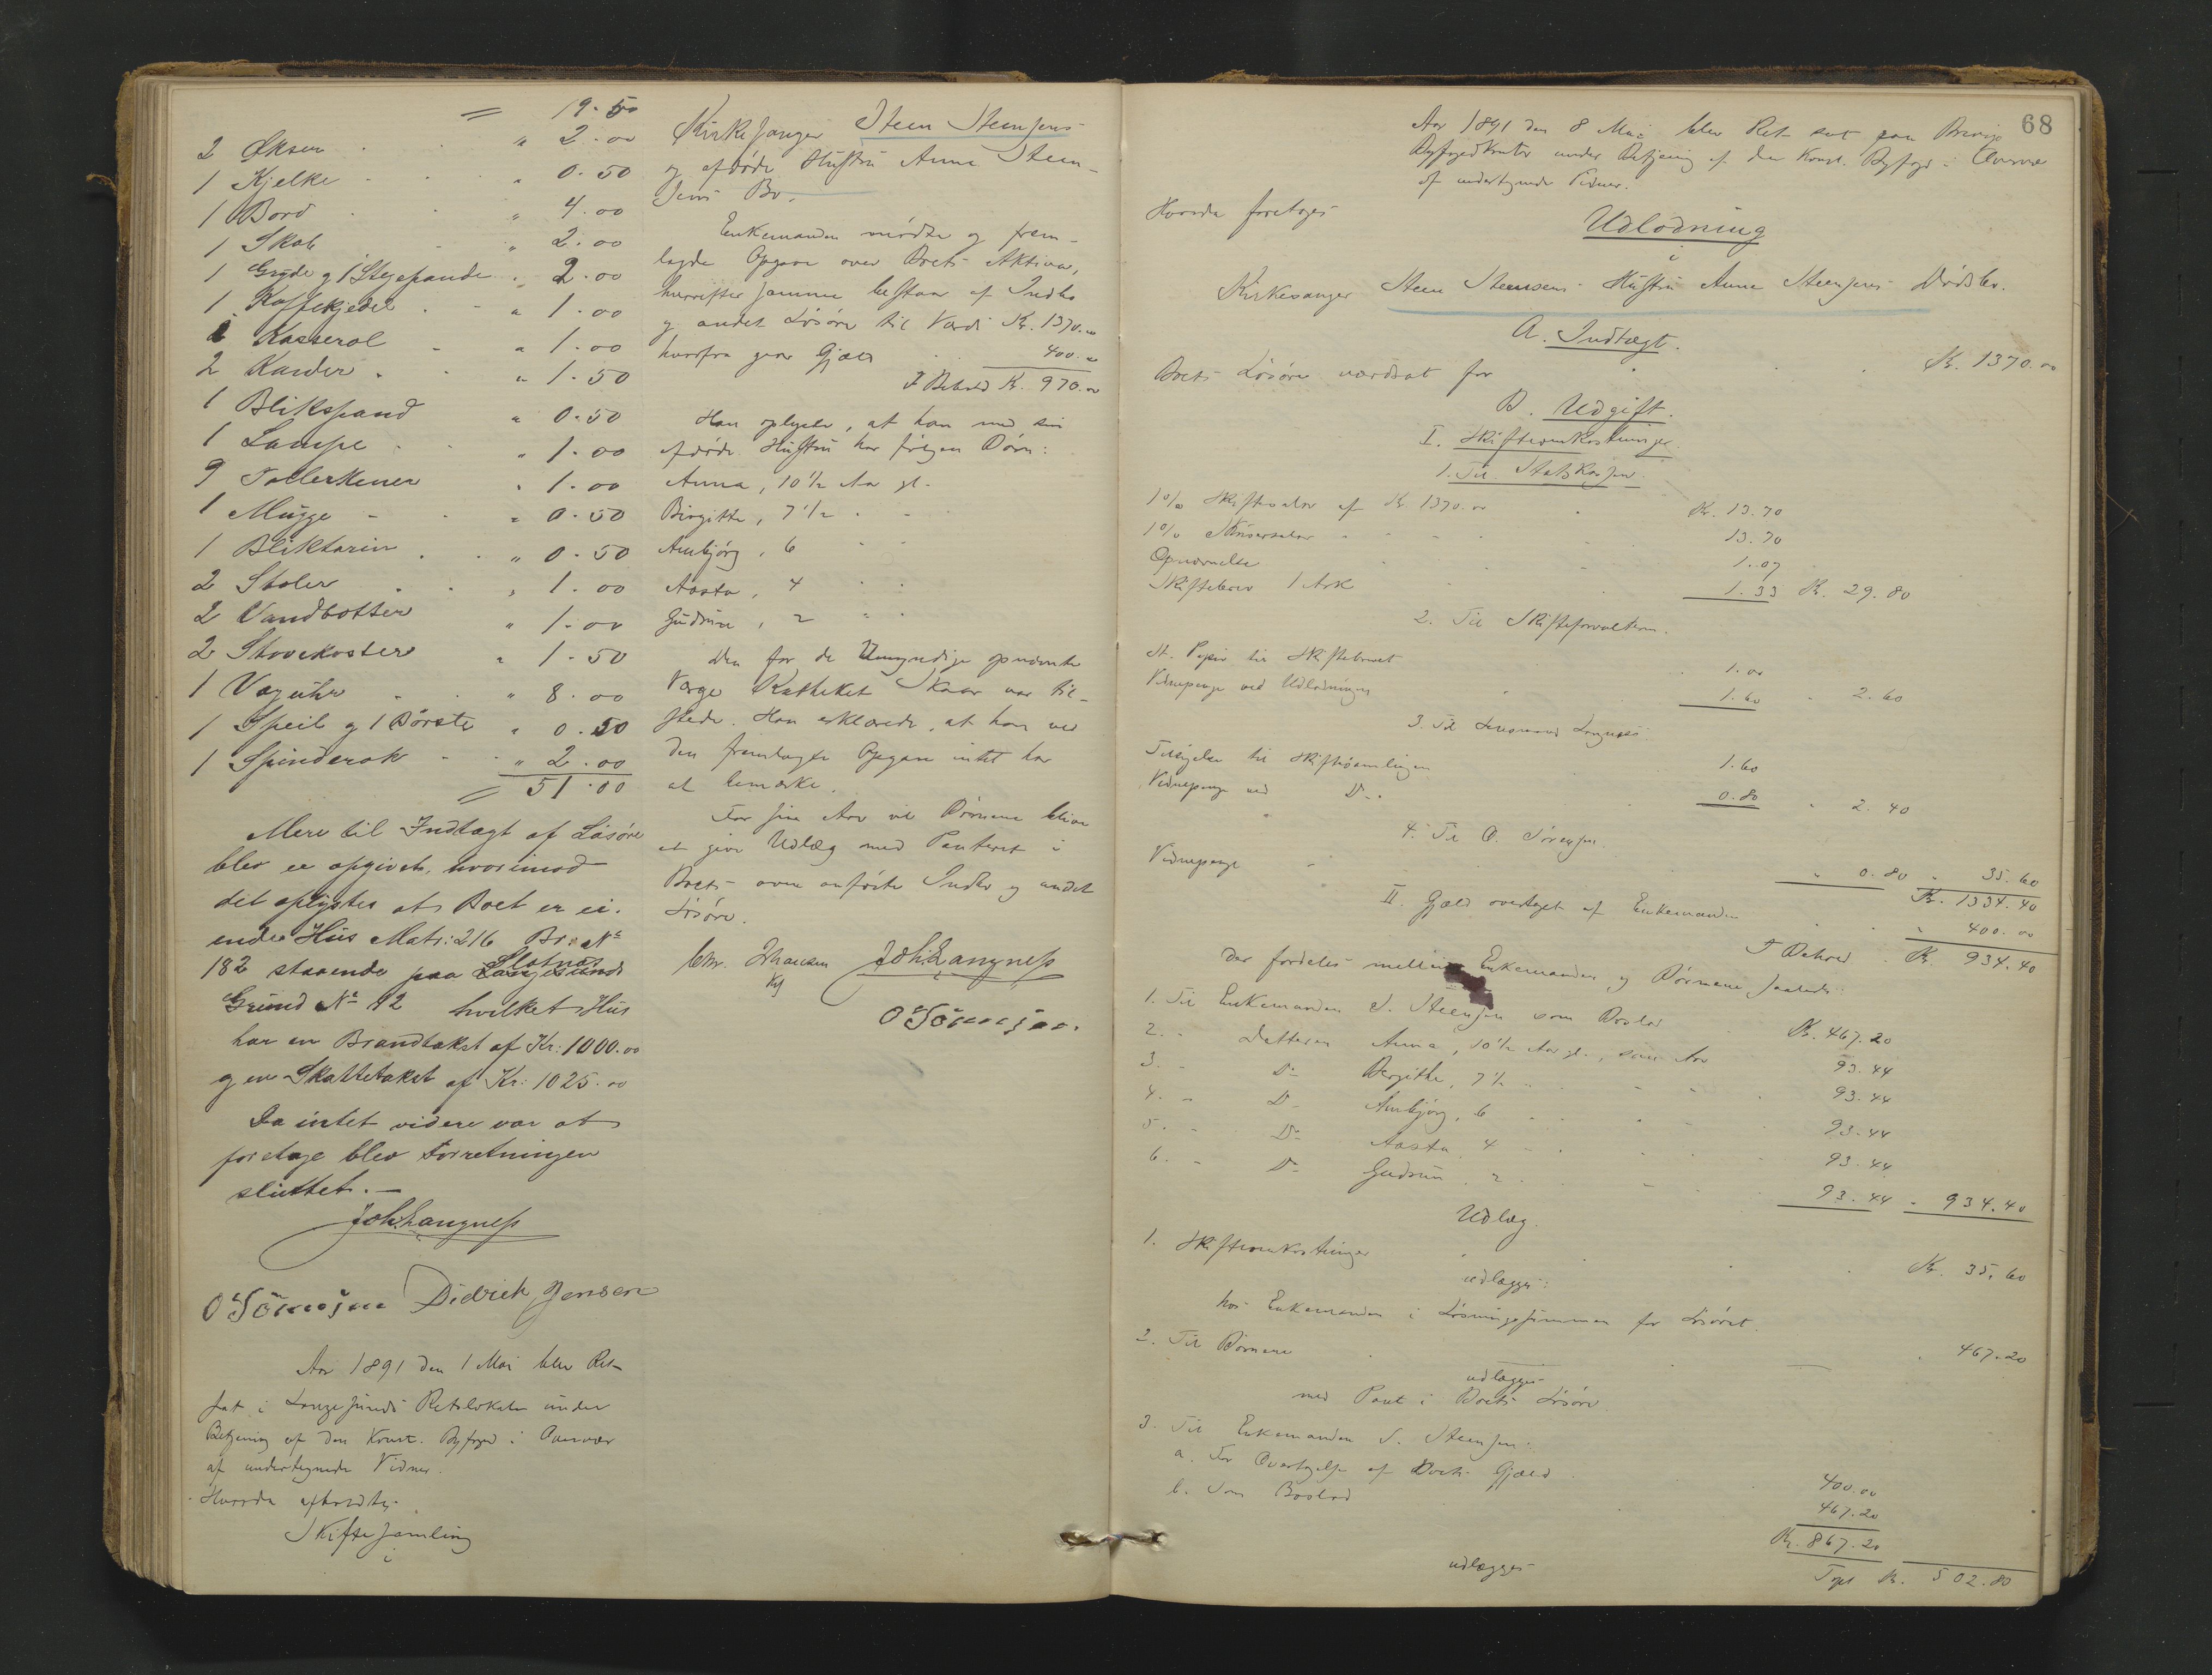 〃 19.50
2 Økser 〃 2.00
1 Kjelke 〃 0.50
1 Bord 〃 4.00
1 Skab 〃 2.00
1 Gryde og 1 Stegepande 〃 2.00
1 Kaffekjedel 〃 1.00
1 Kasserol 〃 1.00
2 Karder 〃 1.50
1 Blikspand 〃 0.50
1 Lampe 〃 1.00
9 Tallerkener 〃 1.00
1 Mugge 〃 0.50
1 Bliktarin 〃 0.50
2 Stoler 〃 1.00
2 Vandbøtter 〃 1.00
2 Stovekoster 〃 1.50
1 Vægúhr 〃 8.00
1 Speil og 1 Børste 〃 0.50
1 Spinderok 〃 2.00
〃 51.00
Mere til Indtægt af Løsøre
blev ei opgivet, hvorimod
det oplystes at Boet er ei-
ende Hús Matr: 216 Br: No
182 staaende paa Langesunds Slotnæs
Grund No 12 hvilket Hús
har en Brandtakst af Kr: 1000.00
og en Skattetakst af Kr: 1025.00
Da intet videre var at
foretage blev Forretningen
sluttet.—
Joh. Langness
O Sörensen Didrich Jensen
Aar 1891 den 1 Mai blev Ret
sat i Langesunds Retslokale under
Betjening af den Konst. Byfoged i Overvær
af undertegnede Vidner.
Hvorda afholdtes
Skiftesamling
i
Kirkesanger Steen Steensens
og afdøde Hustru Anne Steen-
sens Bo.
Enkemanden mødte og frem-
lagde Opgave over Boets Aktiva,
hvorefter samme bestaar af Indbo
og andet Løsøre til Værdi Kr. 1370.00
hvorfra gaar Gjæld 400.00
I Behold Kr. 970.00
Han oplyste, at han med sin
afdøde Hustru har følgen Børn:
Anna, 10 1/2 Aar gl.
Birgitte, 7 1/2 〃 〃
Anbjørg, 6 〃 〃
Aasta, 4 〃 〃
Gudrun, 2 〃 〃
Den for de Umyndige opnævnte
Værge Katheket Skaar var til-
stede. Han erklærede, at han ved
den fremlagte Opgave intet har
at bemærke.
For sin Arv vil Børnene blive
at give Udlæg med Panteret i
Boets oven anførte Indbo og andet
Løsøre.
Joh. Langness
O Sörensen.
68
Aar 1891 den 8 Mai blev Ret sat paa Brevigs
Byfogedkontor under Betjening af den Konst. Byfoged i Overvær
af undertegnede Vidner.
Hvorda foretoges
Udlodning
i
Kirkesanger Steen Steensens Hustru Anne Steensens Dødsbo.
A. Indtægt.
Boets Løsøre værdsat for Kr. 1370.00
B. Udgift.
I. Skifteomkostninger.
1. Til Statskassen.
1% Skifteafga af Kr 1370.00 Kr. 13.70
1% 13.70
Opnævnelse 1.07
Skiftebrev 1 Ark 1.33 Kr. 29.80
2. Til Skifteforvalteren.
St. Papir til Skiftebrevet 1.00
Vidnepenge ved Udlodningen 1.60 〃 2.60
3. Til Lensmand Langness
Tilsigelse til Skiftesamlingen 1.60
Vidnepenge ved Do 0.80 〃 2.40
4. Til O. Sörensen.
Vidnepenge 〃 0.80 〃 35.60
Kr. 1334.40
II. Gjæld overtaget af Enkemanden 〃 400.00
I Behold Kr. 934.40
der fordeles mellem Enkemanden og Børnene saaledes:
1. Til Enkemanden S. Steensen som Boslod Kr. 467.20
2. - Datteren Anna, 10 1/2 Aar gl., som Arv 93.44
3. - Do Bergithe, 7 1/2 〃 93.44
4. - Do Anbjørg, 6 93.44
5. - Do Aasta, 4 93.44
6. - Do Gudrun, 2 93.44 〃 934.40
Udlæg.
1. Skifteomkostninger Kr. 35.60
udlægges:
hos Enkemanden i Løsningssummen for Løsøret.
2. Til Børnene 〃 467.20
udlægges
med Pant i Boets Løsøre.
3. Til Enkemanden S. Steensen:
a. For Overtagelse af Boets Gjæld 400.00
b. Som Boslod 467.20
Kr. 867.20
udlægges
Kr. 502.80